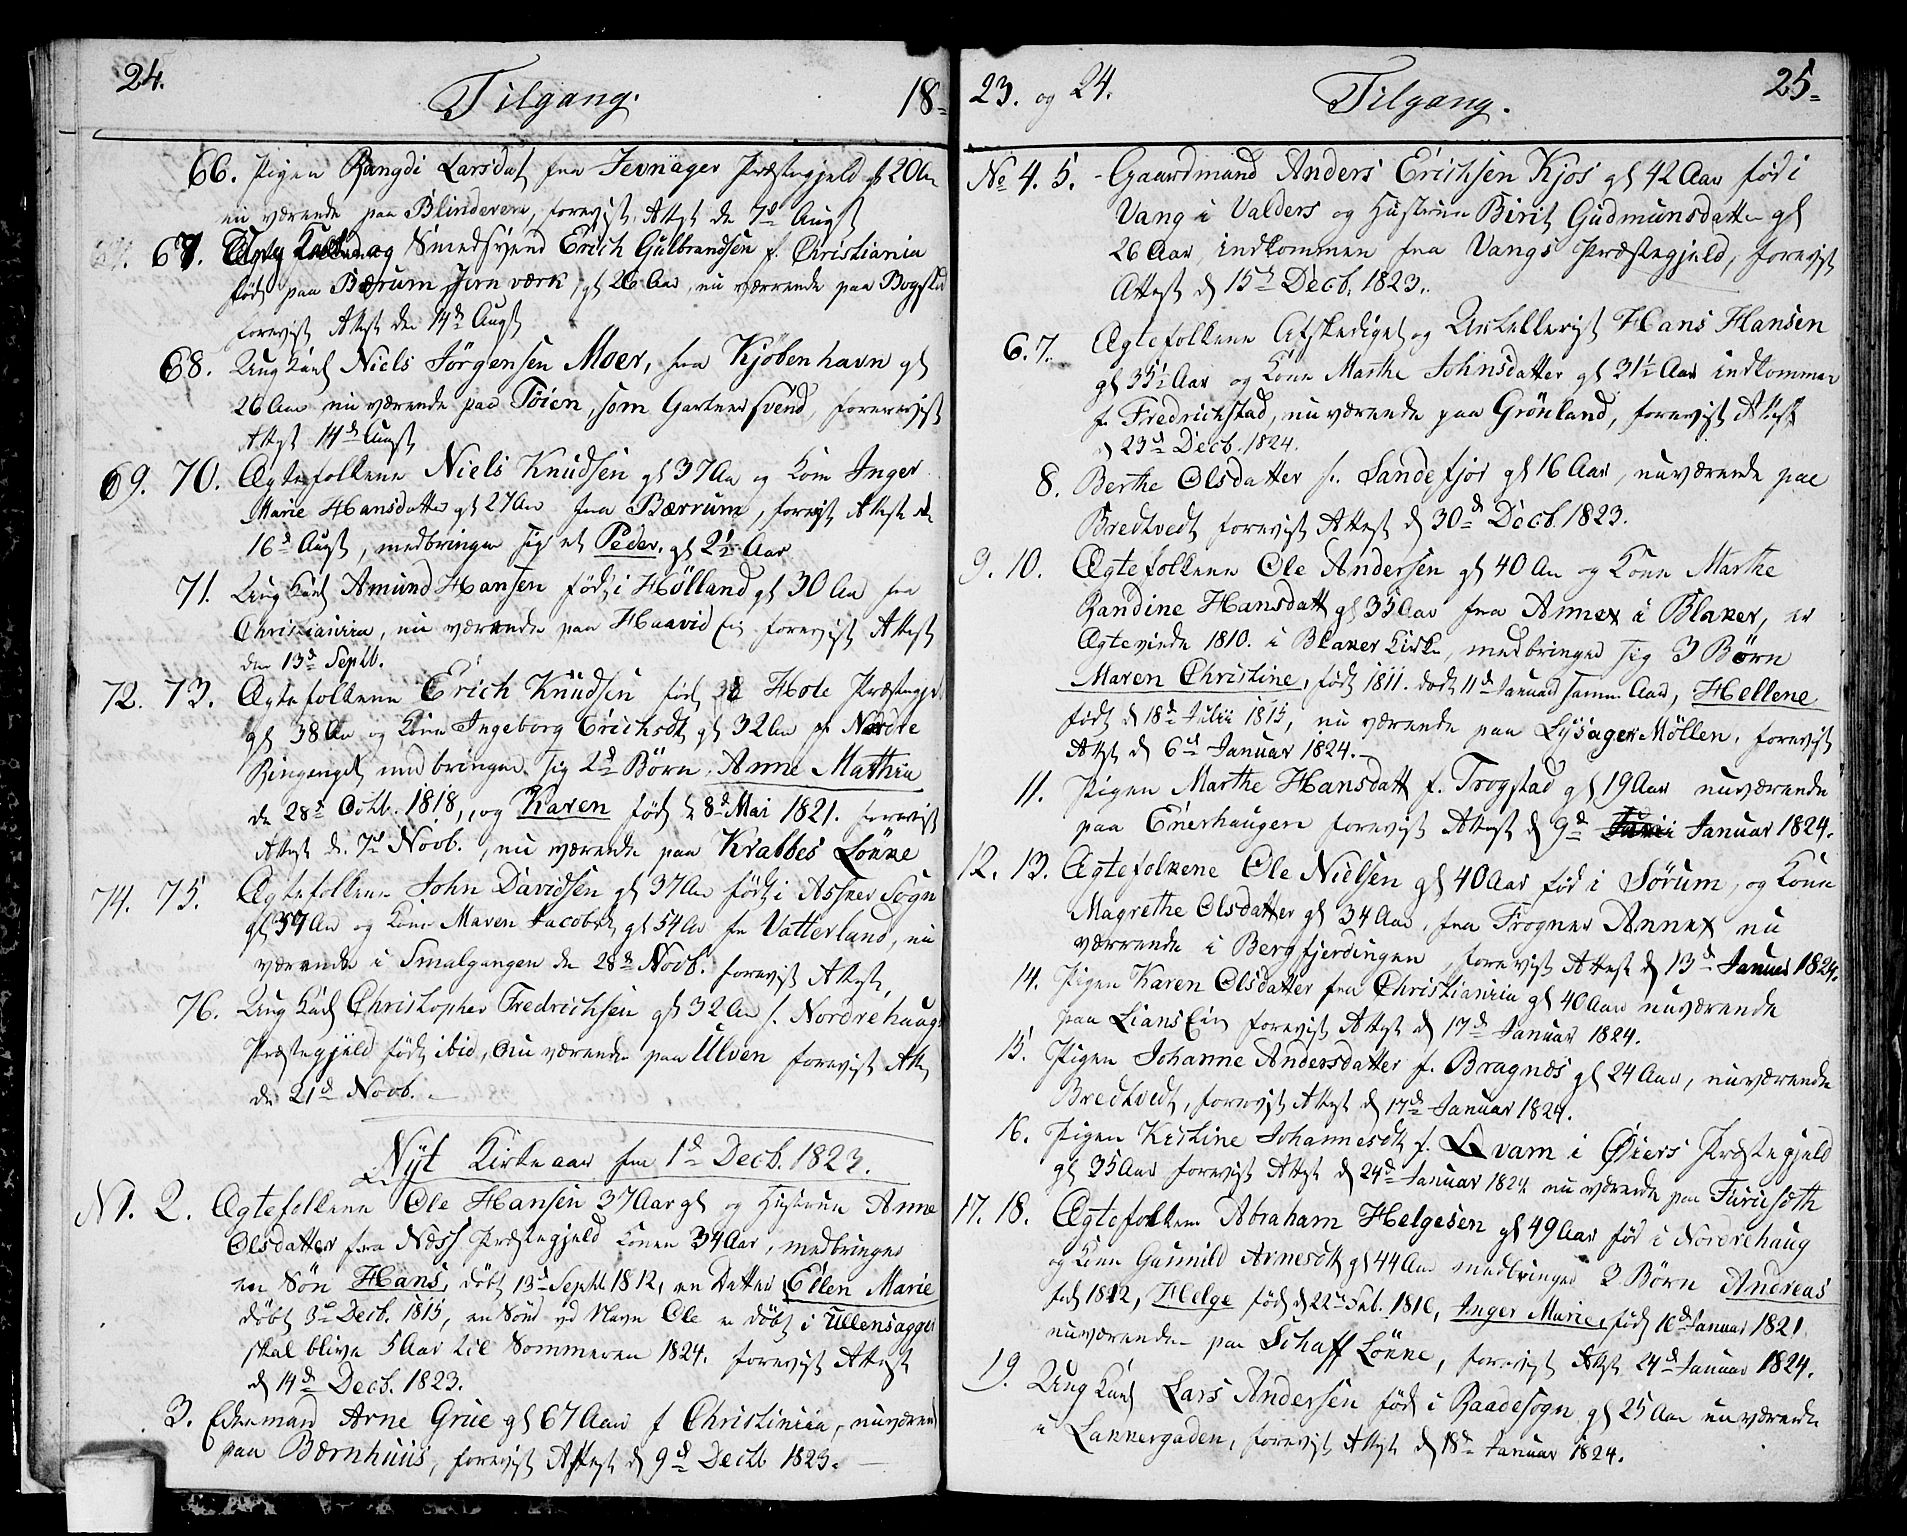 24. Tilgang. 18=
66. Pigen Rangdi Larsdat fra Jevnager Præstegjeld gl 20 Aar
nu værende paa Blinderen, forevist Attest de 7d August
67. og Smedsvend Erich Gulbrandsen f. Christiania
född paa Bærum Jernværk, gl 26 Aar, nu værrende paa Bogstad
forevist Attest den 14d Augst
68. Ung Karl Niels Jörgensen Moer, fra Kjöbenhavn gl
26 Aar nu værende paa Töien, som Gartnersvend, forevist
Attest 14d Augst
69. 70. Ægtefolkene Niels Knudsen gl 37 Aar og Kone Inger
Marie Hansdatter gl 27 Aar fra Bærrum, forevist Attest de
16d Augst, medbringer sig et Peder. gl 2½ Aar
71. Ung Karl Amund Hansen född i Hölland gl 30 Aar fra
Christiania, nu værende paa Haavid Eie forevist Attest
den 13d Septb.
72. 73. Ægtefolkene Erich Knudsen född i Hole Præstegjd.
gl 38 Aar og Kone Ingeborg Erichsdt gl 32 Aar f. Nordre
Ringeriget medbringer sig 2d Börn. Anne Mathia
de 28d Octb. 1818, og Karen född d 8d Mai 1821. forevist
Attest d. 7d Novb., nu værende paa Krabbes Lökke
74. 75. Ægtefolkene John Davidsen gl 37 Aar född i Asker Sogn
gl 37 Aar og Kone Maren Jacobsdt gl 54 Aar fra Vatterland, nu
værende i Smalgangen de 28d Novb. forevist Attest,
76. Ung Karl Christopher Fredrichsen gl 32 Aar f. Nordrehaugs
Præstegjeld född ibid, nu værende paa Ulven forevist Att
de 21d Novb. –
Nÿt Kirkeaar fra 1d Decb. 1823.
N 1. 2. Ægtefolkene Ole Hansen 37 Aar gl og Hustrue Anne
Olsdatter fra Næss Præstegjeld Konen 34 Aar, medbringer
en Sön Hans, döbt 13d Septb 1812, en Datter Ellen Marie
döbt 3d Decb. 1815, en Sönd ved Navn Ole er döbt i Ullensagger
skal blive 5 Aar til Sommeren 1824. forevist Attest
d 14d Decb. 1823.
3. Arne Grue gl 67 Aar f Christiania, nuværend
paa Bærnhuus, forevist Attest d 9d Decbb 1823.
23. og 24. Tilgang. 25=
No 4. 5. Gaardmand Anders Erichsen Kjos gl 42 Aar föd i
Vang i Valders og Hustrue Birit Gudmunsdatter gl
26 Aar, indkommen fra Vangs Præstegjeld, forevist
Attest d 15d Decb. 1823.
6. 7. Ægtefolkene Afskediget og Artellerist Hans Hansen
gl 35½ Aar og Kone Marthe Johnsdatter gl 31½ Aar indkommen
f. Fredrichstad, nuværende paa Grönland, forevist Attest
d 23d Decb. 1824.
8. Berthe Olsdatter f. Sandefjor gl 16 Aar, nuværende paa
Bredtvedt forevist Attest d 30d Decb. 1823.
9. 10. Ægtefolkene Ole Andersen gl 40 Aar og Kone Marthe
Randine Hansdatt gl 35 Aar fra Annex i Blaker, er
Ægteviede 1810. i Blaker Kirke, medbringer sig 3 Börn
Maren Christine, född 1811. död 11d Januar samme Aar, Hellene
född d 18d Julii 1815, nu værende paa Lysager Möllen. forevist
Attest d 6d Januar 1824. –
11. Pigen Marthe Hansdatt f. Trogstad gl 19 Aar nuværende
paa Enerhaugen forevist Attest d 9d Januar 1824.
12. 13. Ægtefolkene Ole Nielsen gl 40 Aar föd i Sörum, og Kone
Magrethe Olsdatter gl 34 Aar, fra Frogner Annex nu
værrende i Bergfjerdingen, forevist Attest d 13d Januar 1824.
14. Pigen Karen Olsdatter fra Christiania gl 40 Aar nuværende
paa Lians Eie forevist Attest d 17d Januar 1824.
15. Pigen Johanne Andersdatter f. Bragnæs gl 24 Aar, nuværende
Bredtvedt, forevist Attest d 17d Januar 1824.
16. Pigen Kristine Johannesdt f. Qvam i Öiers Præstegjeld
gl 35 Aar forevist Attest d 24d Januar 1824 nu værende paa Furuesöth
17. 18. Ægtefolkene Abraham Helgesen gl 49 Aar föd i Nordrehaug
og Kone Gunnild Arnesdt gl 44 Aar medbringer 3 Börn Andreas
föd 1812, Helge föd d 22d 1816, Inger Marie, föd 16d Januar 1821
nuværende paa Schaff Lökke, forevist Attest 24d Januar 1824.
19. Ung Karl Lars Andersen född i Raadesogn gl 25 Aar nuværende
i Lakkergaden, forevist Attest d 18d Januar 1824.